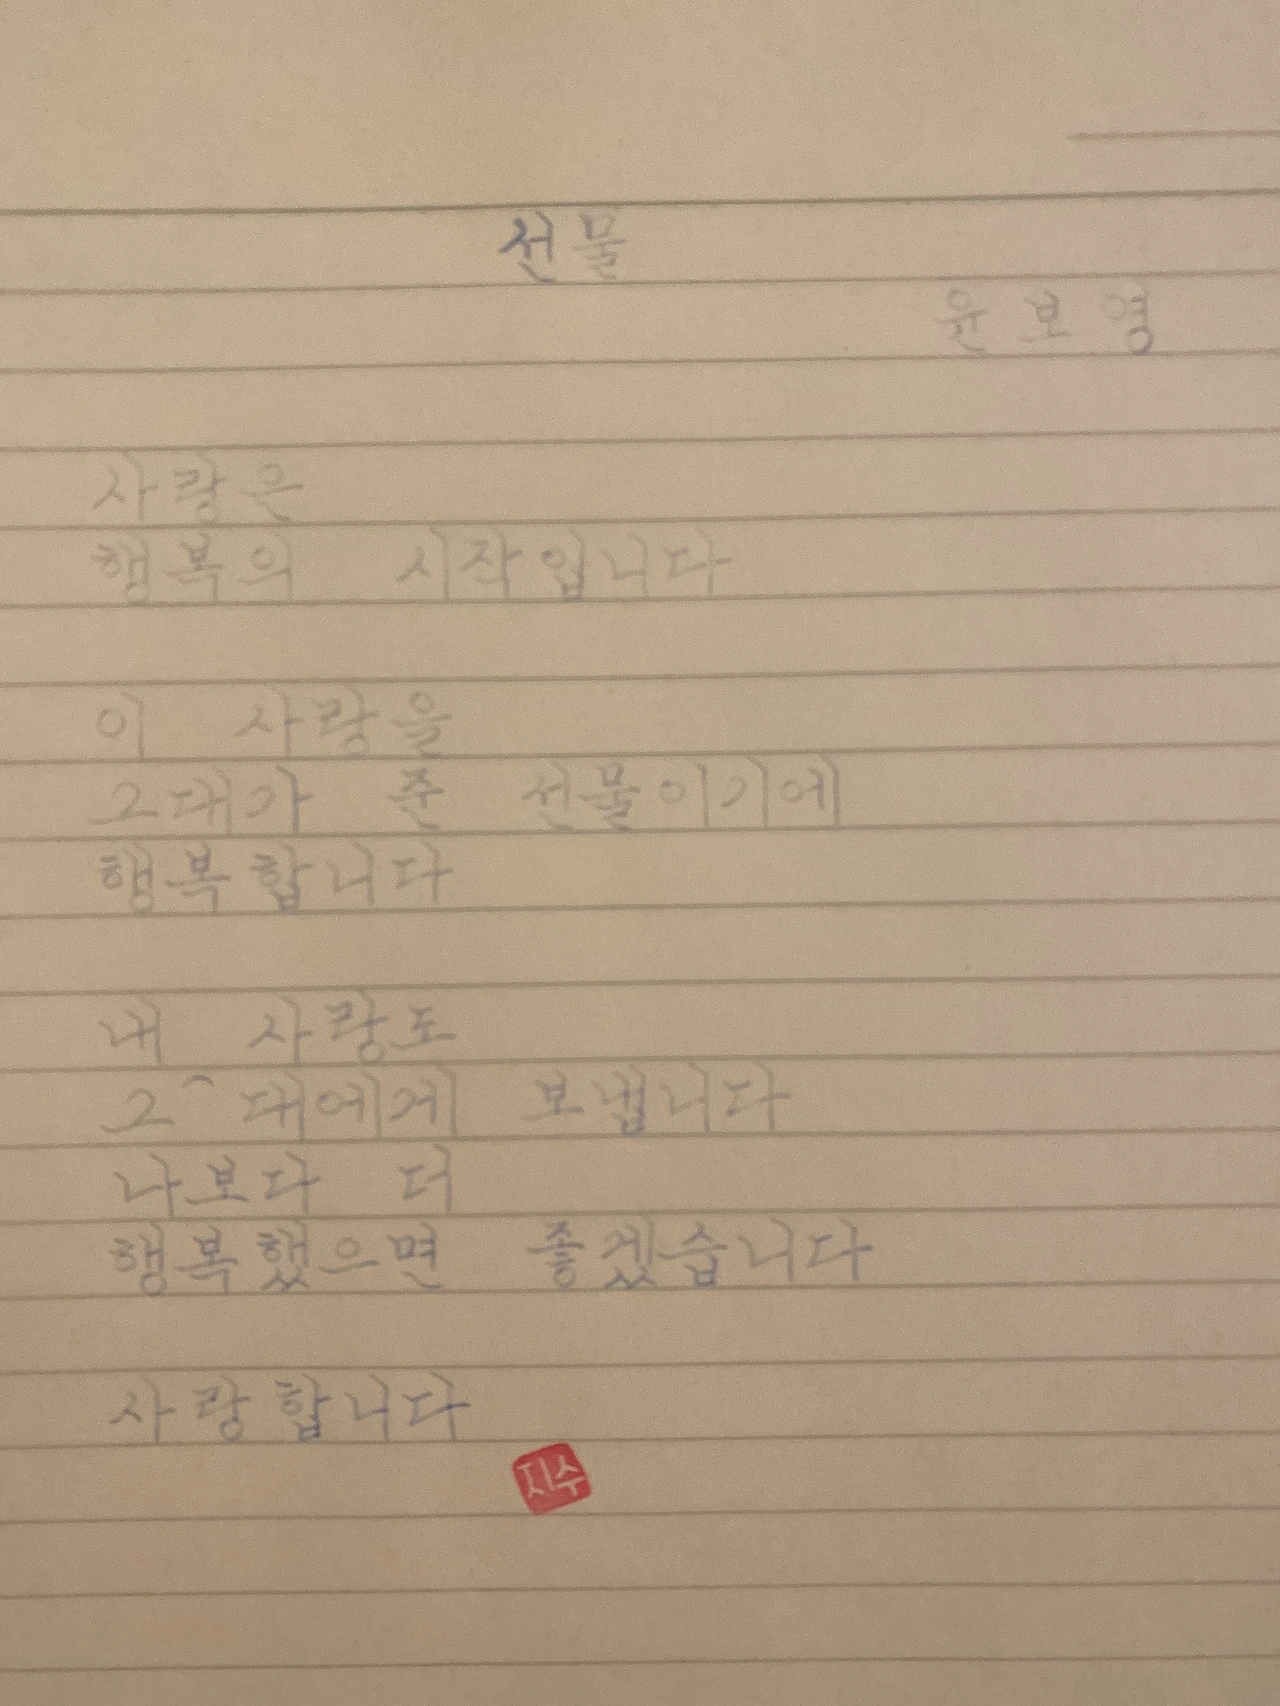 선물
윤보영
사랑은
행복의 시작입니다
이 사랑을
그대가 준 선물이기에
행복합니다
내 사랑도
그 대에게 보냅니다
나보다 더
행복했으면 좋겠습니다
사랑합니다
지수